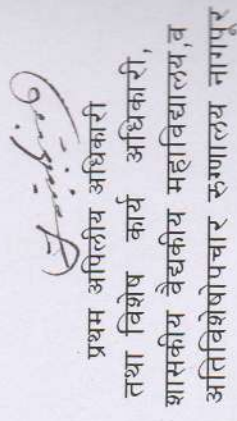 प्रथम अपिलीय अधिकारी
तथा विशेष कार्य अधिकारी,
शासकीय वैद्यकीय महाविद्यालय,व
अतिविशेषोपचार रुग्णालय नागपूर